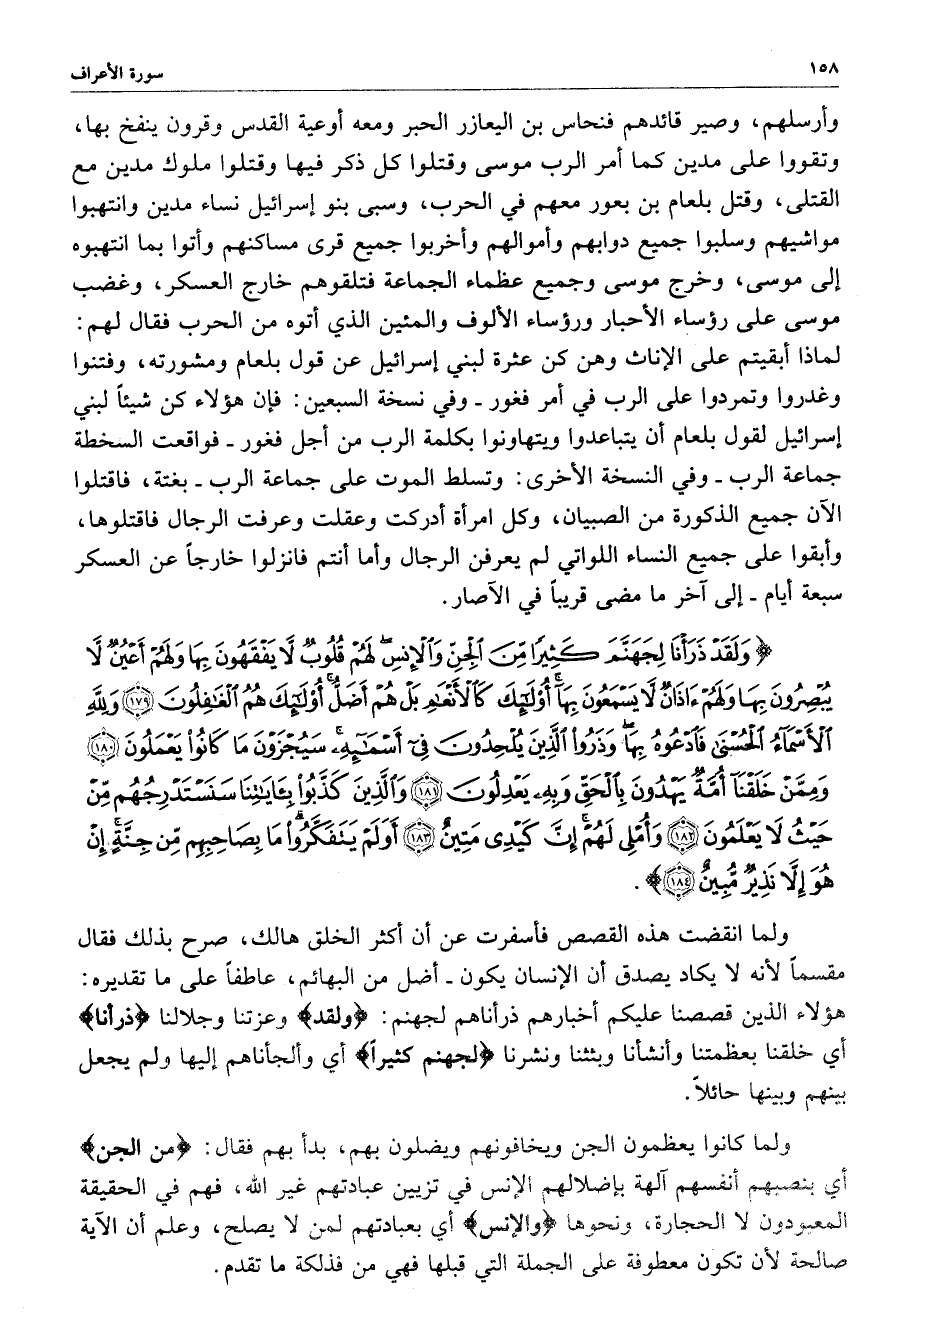 ١٥٨
سورة الأعراف
وأرسلهم، وصير قائدهم فنحاس بن اليعازر الحبر ومعه أوعية القدس وقرون ينفخ بها،
وتقووا على مدين كما أمر الرب موسى وقتلوا كل ذكر فيها وقتلوا ملوك مدين مع
القتلى، وقتل بلعام بن بعور معهم في الحرب، وسبى بنو إسرائيل نساء مدين وانتهبوا
مواشيهم وسلبوا جميع دوابهم وأموالهم وأخربوا جميع قرى مساكنهم وأتوا بما انتهبوه
إلى موسى، وخرج موسى وجميع عظماء الجماعة فتلقوهم خارج العسكر، وغضب
موسى على رؤساء الأحبار ورؤساء الألوف والمئين الذي أتوه من الحرب فقال لهم:
لماذا أبقيتم على الإناث وهن كن عثرة لبني إسرائيل عن قول بلعام ومشورته، وفتنوا
وغدروا وتمردوا على الرب في أمر فغور ـ وفي نسخة السبعين: فإن هؤلاء كن شيئاً لبني
إسرائيل لقول بلعام أن يتباعدوا ويتهاونوا بكلمة الرب من أجل فغور ـ فواقعت السخطة
جماعة الرب ـ وفي النسخة الأخرى: وتسلط الموت على جماعة الرب ـ بغتة، فاقتلوا
الآن جميع الذكورة من الصبيان، وكل امرأة أدركت وعقلت وعرفت الرجال فاقتلوها،
وأبقوا على جميع النساء اللواتي لم يعرفن الرجال وأما أنتم فانزلوا خارجاً عن العسكر
سبعة أيام ـ إلى آخر ما مضى قريباً في الآصار.
﴿وَلَقَدْ ذَرَأْنَا لِجَهَنَّمَ كَثِيرًا مِّنَ ٱلْجِنِّ وَٱلْإِنسِ ۖ لَهُمْ قُلُوبٌ لَّا يَفْقَهُونَ بِهَا وَلَهُمْ أَعْيُنٌ لَّا
يُبْصِرُونَ بِهَا وَلَهُمْ ءَاذَانٌ لَّا يَسْمَعُونَ بِهَآ ۚ أُو۟لَٰٓئِكَ كَٱلْأَنْعَٰمِ بَلْ هُمْ أَضَلُّ ۚ أُو۟لَٰٓئِكَ هُمُ ٱلْغَٰفِلُونَ ۝١٧٩ وَلِلَّهِ
ٱلْأَسْمَآءُ ٱلْحُسْنَىٰ فَٱدْعُوهُ بِهَا ۖ وَذَرُوا۟ ٱلَّذِينَ يُلْحِدُونَ فِىٓ أَسْمَٰٓئِهِۦ ۚ سَيُجْزَوْنَ مَا كَانُوا۟ يَعْمَلُونَ ۝١٨٠
وَمِمَّنْ خَلَقْنَآ أُمَّةٌ يَهْدُونَ بِٱلْحَقِّ وَبِهِۦ يَعْدِلُونَ ۝١٨١ وَٱلَّذِينَ كَذَّبُوا۟ بِـَٔايَٰتِنَا سَنَسْتَدْرِجُهُم مِّنْ
حَيْثُ لَا يَعْلَمُونَ ۝١٨٢ وَأُمْلِى لَهُمْ ۚ إِنَّ كَيْدِى مَتِينٌ ۝١٨٣ أَوَلَمْ يَتَفَكَّرُوا۟ ۗ مَا بِصَاحِبِهِم مِّن جِنَّةٍ ۚ إِنْ
هُوَ إِلَّا نَذِيرٌ مُّبِينٌ ۝١٨٤﴾.
ولما انقضت هذه القصص فأسفرت عن أن أكثر الخلق هالك، صرح بذلك فقال
مقسماً لأنه لا يكاد يصدق أن الإنسان يكون ـ أضل من البهائم، عاطفاً على ما تقديره:
هؤلاء الذين قصصنا عليكم أخبارهم ذرأناهم لجهنم: ﴿ولقد﴾ وعزتنا وجلالنا ﴿ذرأنا﴾
أي خلقنا بعظمتنا وأنشأنا وبثثنا ونشرنا ﴿لجهنم كثيراً﴾ أي وألجأناهم إليها ولم يجعل
بينهم وبينها حائلاً.
ولما كانوا يعظمون الجن ويخافونهم ويضلون بهم، بدأ بهم فقال: ﴿من الجن﴾
أي بنصبهم أنفسهم آلهة بإضلالهم الإنس في تزيين عبادتهم غير الله، فهم في الحقيقة
المعبودون لا الحجارة، ونحوها ﴿والإنس﴾ أي بعبادتهم لمن لا يصلح، وعلم أن الآية
صالحة لأن تكون معطوفة على الجملة التي قبلها فهي من فذلكة ما تقدم.